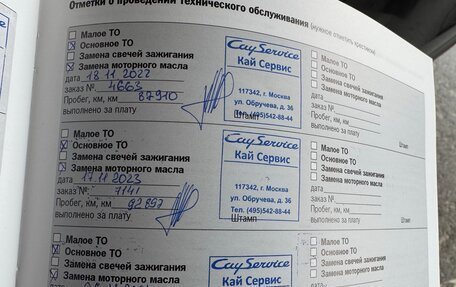 Отметки о проведении технического обслуживания (нужное отметить крестиком)
Малое ТО
Основное ТО
Замена свечей зажигания
Замена моторного масла
дата 18 11 2022
заказ № 4663
Пробег, км, км 87910
выполнено за плату
Cay Service
Кай Сервис
117342, г. Москва
ул. Обручева, д. 36
Тел. (495)542-88-44
Штамп
Малое ТО
Основное ТО
Замена свечей зажигания
Замена моторного масла
дата
заказ №
Пробег, км, км
выполнено за плату
Штамп
Малое ТО
Основное ТО
Замена свечей зажигания
Замена моторного масла
дата 17 11 2023
заказ № 7141
Пробег, км, км 92897
выполнено за плату
Cay Service
Кай Сервис
117342, г. Москва
ул. Обручева, д. 36
Тел. (495)542-88-44
Штамп
Малое ТО
Основное ТО
Замена свечей зажигания
Замена моторного масла
дата
заказ №
Пробег, км, км
выполнено за плату
Малое ТО
Основное ТО
Замена свечей зажигания
Замена моторного масла
Cay Service
Кай Сервис
Малое ТО
Основное ТО
Замена свечей зажигания
Замена моторного масла
дата